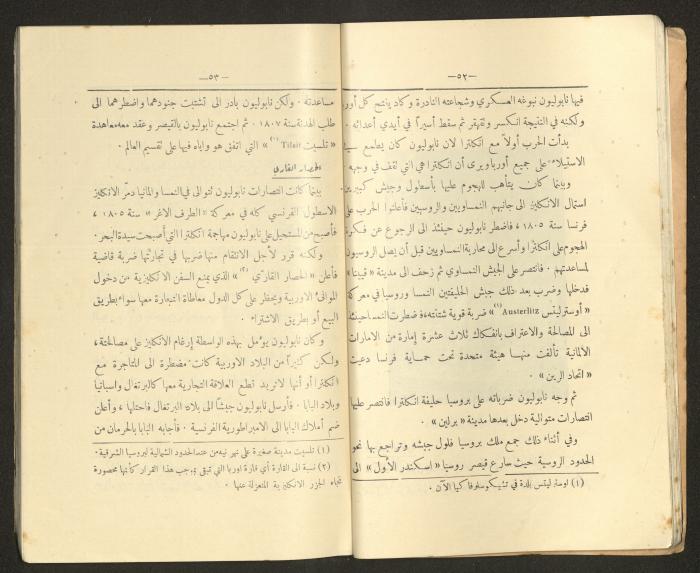 — ٥٢ —
فيها نابوليون نبوغه العسكري وشجاعته النادرة وكاد ينتج كل أور
ولكنه في النتيجة انكسر وتقهقر ثم سقط أسيراً في أيدي أعدائه .
بدأت الحرب أولاً مع انكلترا لان نابوليون كان يطامع في
الاستيلاء على جميع أوربا ويرى أن انكلترا هي التي تقف في وجهه
وبينما كان يتأهب للهجوم عليها بأسطول وجيش كبيرين
استمال الانكليز الى جانبهم النمساويين والروسيين فأعلنوا الحرب على
فرنسا سنة ١٨٠٥ ، فاضطر نابوليون حينئذ الى الرجوع عن فكرة
الهجوم على انكلترا وأسرع الى محاربة النمساويين قبل أن يصل الروسيون
لمساعدتهم . فانتصر على الجيش النمساوي ثم زحف الى مدينة « فيينا »
فدخلها وضرب بعد ذلك جيش الحليفتين النمسا وروسيا في معركة
« أوسترليتس Austerlitz (١) » ضربة قوية شتتته ، فاضطرت النمسا حينئذ
الى المصالحة والاعتراف بانفكاك ثلاث عشرة إمارة من الامارات
الالمانية تألفت منها هيئة متحدة تحت حماية فرنسا دعيت
« اتحاد الرين » .
ثم وجه نابوليون ضرباته على بروسيا حليفة انكلترا فانتصر عليها
انتصارات متوالية دخل بعدها مدينة « برلين » .
وفي أثناء ذلك جمع ملك بروسيا فلول جيشه وتراجع بها نحو
الحدود الروسية حيث سارع قيصر روسيا « اسكندر الأول » الى
(١) اوسترليتس بلدة في تشيكوسلوفاكيا الآن .
— ٥٣ —
مساعدته . ولكن نابوليون بادر الى تشتيت جنودهما واضطرهما الى
طلب الهدنة سنة ١٨٠٧ . ثم اجتمع نابوليون بالقيصر وعقد معه معاهدة
« تلسيت Tilsit (١) » التي اتفق هو واياه فيها على تقسيم العالم .
الحصار القاري
بينما كانت انتصارات نابوليون تتوالى في النمسا والمانيا دمّر الانكليز
الاسطول الفرنسي كله في معركة « الطرف الاغر » سنة ١٨٠٥ ،
فأصبح من المستحيل على نابوليون مهاجمة انكلترا التي أصبحت سيدة البحر .
ولكنه قرر لأجل الانتقام منها ضربها في تجارتها ضربة قاضية
فأعلن « الحصار القارّي (٢) » الذي يمنع السفن الانكليزية من دخول
الموانئ الاوربية ويحظر على كل الدول معاطاة التجارة معها سواء بطريق
البيع أو بطريق الاشتراء .
وكان نابوليون يؤمل بهذه الواسطة إرغام الانكليز على مصالحته ،
ولكن كثيراً من البلاد الاوربية كانت مضطرة الى المتاجرة مع
انكلترا أو أنها لا تريد تطع العلاقة التجارية معها كالبرتغال واسبانيا
وبلاد البابا . فأرسل نابوليون جيشاً الى بلاد البرتغال فاحتلها ، وأعلن
ضم أملاك البابا الى الامبراطورية الفرنسية . فأجابه البابا بالحرمان من
(١) تلسيت مدينة صغيرة على نهر نيه من عند الحدود الشمالية لبروسيا الشرقية .
(٢) نسبة الى القارة أي قارة اوربا التي تبقى بموجب هذا القرار كأنها محصورة
تجاه الجزر الانكليزية المنعزلة عنها .